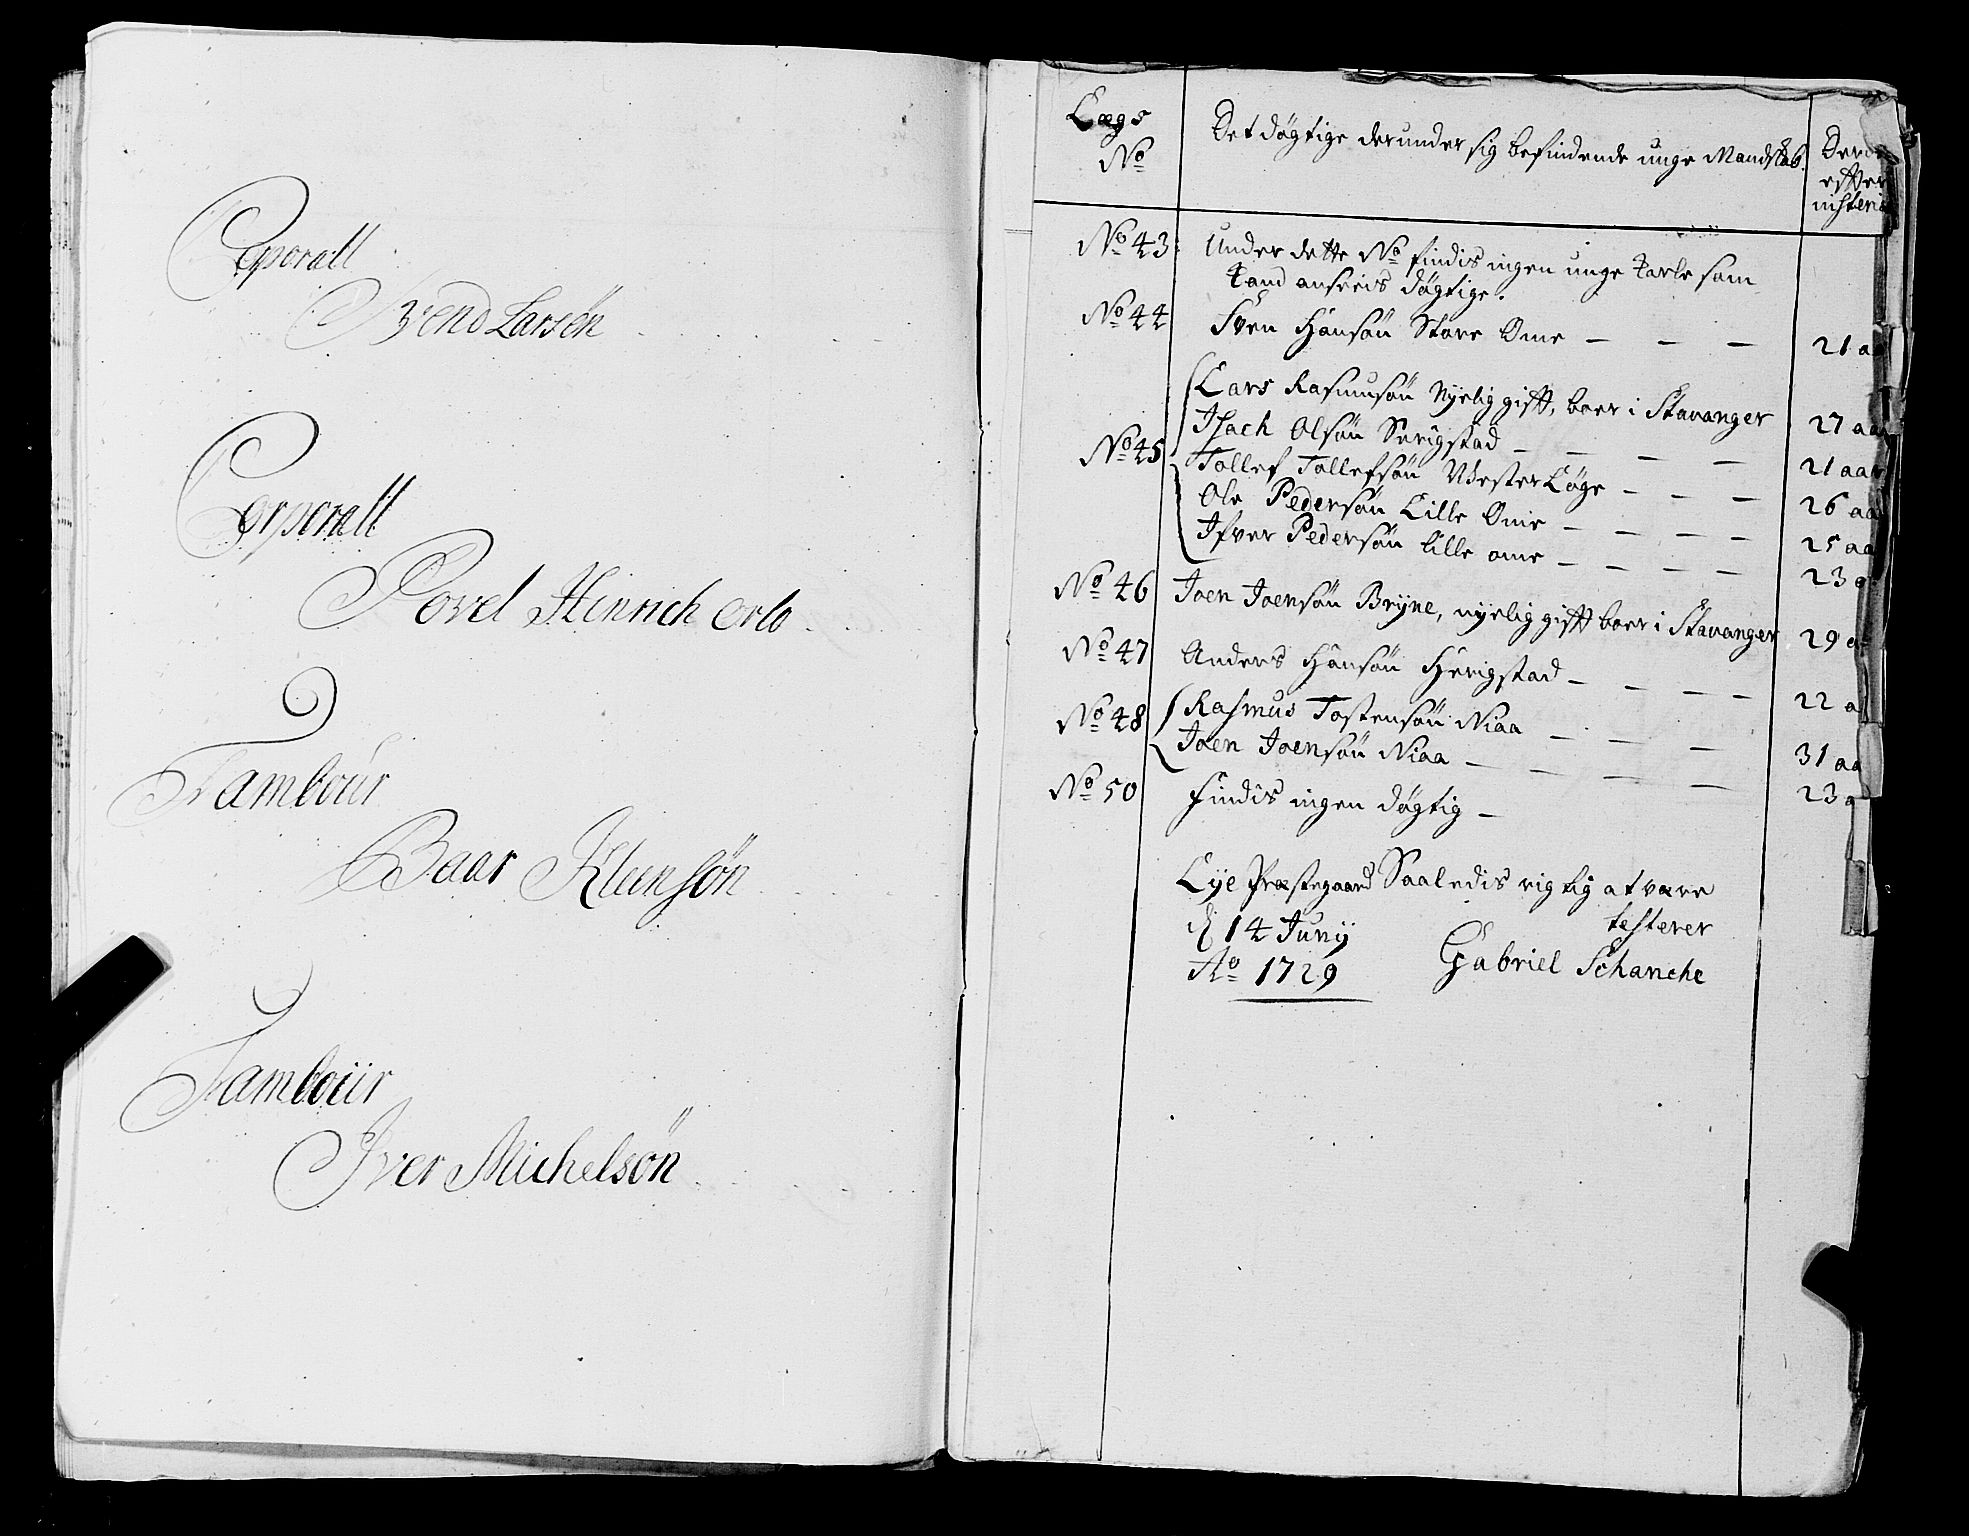 Corporall
Svend Larsön
Corporall
Povel Hinrich Orlo
Tambour
Baar Kleensön
Tambour
Iver Michelsön
Lægs
No
Det døgtige derunder sig befindende unge Mandskab.
Deres
effter
nisteria
No 43: Under dette No findis ingen unge Karle som
kand ansees døgtige.
No 44 Sven Hansøn Store Ome — — — 21 aa
Lars Rasmusøn Nyelig gifft, boer i Stavanger 27 aa
No 45 Isach Olsøn Serigstad — — — — 21 aar
Tollef Tollefsøn Wester Løge — — — 26 aa
Ole Pedersøn Lille Ome — — — — 25 aa
Ifver Pedersøn Lille ome — — — — 23 a
No 46 Joen Joensøn Bryne, nyelig gifft boer i Stavanger 29 a
No 47 Anders Hansøn Herigstad — — — — 22 a
No 48 Rasmus Tostensøn Niaa — — — 31 aa
Joen Joensøn Niaa — — — — 23 a
No 50 findis ingen døgtig —
Lye Præstegaard Saaledis rigtig at være
d 14 Junij testerer
Ao 1729 Gabriel Schanche